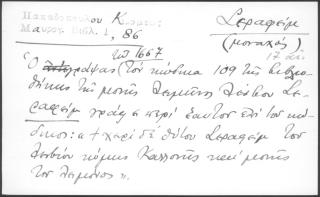 Παπαδοπούλου Κεραμ:
Μαυρογ. Βιβλ. 1, 86
Σεραφείμ
(μοναχός)
17 αἰ.
τῷ 1667
Ὁ γράψας τὸν κώδικα 109 τῆς βιβλιο
θήκης τῆς μονῆς Λειμῶνος Λέσβου Σε
ραφείμ γράφει περὶ ἑαυτοῦ ἐπὶ τοῦ κώ
δικος: « † χειρὶ δὲ θύτου Σεραφείμ τοῦ
Λεσβίου κώμης Καλλονῆς καὶ μονῆς
τοῦ Λειμῶνος ».